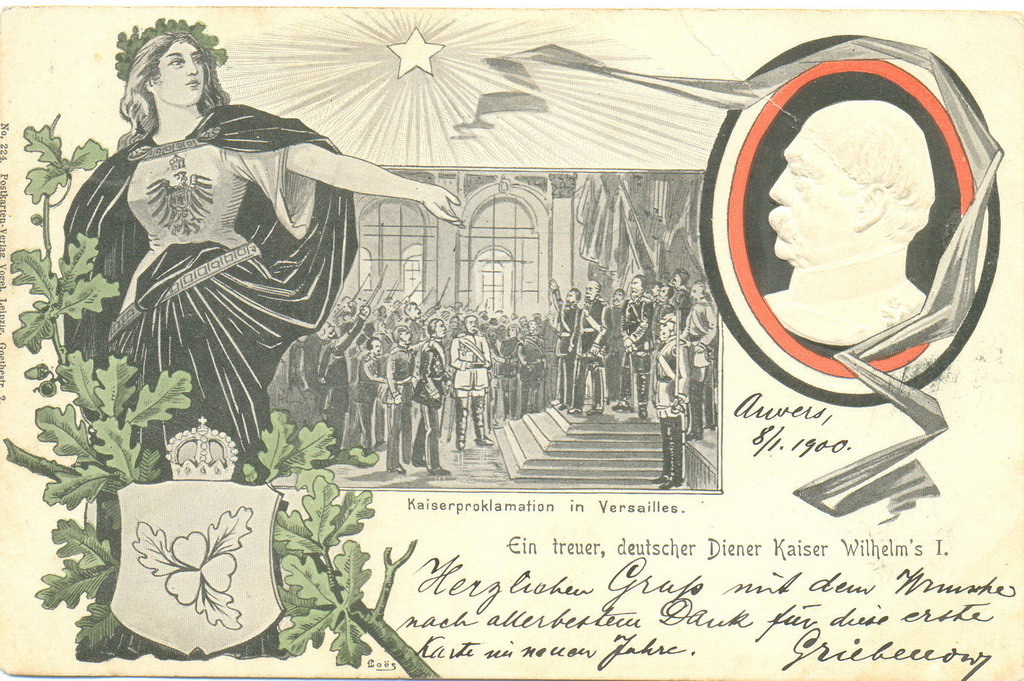 No. 224. Postkarten-Verlag Vogel, Leipzig, Goethestr. 2.
Anvers,
8/1. 1900.
Kaiserproklamation in Versailles.
Ein treuer, deutscher Diener Kaiser Wilhelm's I.
Herzlichen Gruß mit dem Wunsche
nach allerbestem Dank für diese erste
Karte im neuen Jahre.
Griebenow